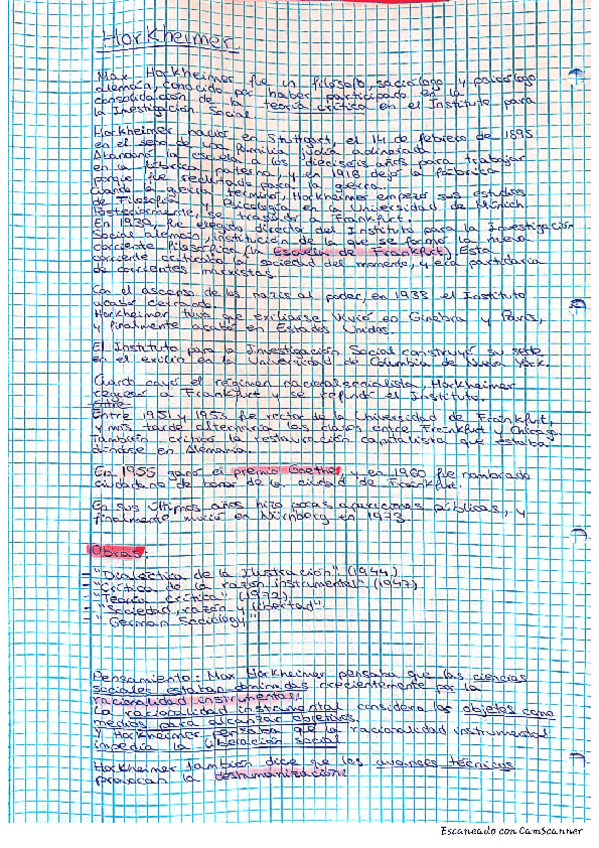 Horkheimer.
Max Horkheimer fue un filósofo, sociólogo y psicólogo
alemán, conocido por haber participado en la
consolidación de la teoría crítica en el Instituto para
la Investigación Social.
Horkheimer nació en Stuttgart, el 14 de febrero de 1895
en el seno de una familia judía adinerada.
Abandonó la escuela a los dieciseis años para trabajar
en la fábrica paterna, y en 1918 dejó la fábrica
porque fue reclutado para la guerra.
Cuando la guerra terminó, Horkheimer empezó sus estudios
de Filosofía y Psicología en la Universidad de Múnich
Posteriormente, se trasladó a Frankfurt.
En 1930, fue elegido director del Instituto para la Investigación
Social alemosa, institución de la que se formó la nueva
corriente filosófica (la Escuela de Frankfurt). Esta
corriente criticaba la sociedad del momento, y era partidaria
de corrientes marxistas.
Con el ascenso de los nazis al poder, en 1933 el Instituto
acabó cerrando.
Horkheimer tuvo que exiliarse. Vivió en Ginebra y París,
y finalmente acabó en Estados Unidos.
El Instituto para la Investigación Social construyó su sede
en el exilio en la Universidad de Columbia de Nueva York.
Cuando cayó el régimen nacionalsocialista, Horkheimer
regresó a Frankfurt y se refundó el Instituto.
Entre
Entre 1951 y 1953 fue rector de la Universidad de Frankfurt,
y más tarde alternaría las clases entre Frankfurt y Chicago.
También criticó la restauración capitalista que estaba
dándose en Alemania.
En 1955 ganó el premio Goethe, y en 1960 fue nombrado
ciudadano de honor de la ciudad de Frankfurt.
En sus últimos años hizo pocas apariciones públicas, y
finalmente murió en Nürnberg en 1973.
Obras:
- "Dialéctica de la Ilustración". (1944)
- "Crítica de la razón instrumental" (1947)
- "Teoría crítica". (1972)
- "Sociedad, razón y libertad".
- "German Sociology"
Pensamiento: Max Horkheimer pensaba que las ciencias
sociales estaban dominadas crecientemente por la
racionalidad instrumental.
La racionalidad instrumental considera los objetos como
medios para alcanzar objetivos.
Y Horkheimer pensaba que la racionalidad instrumental
impedía la liberación social
Horkheimer también dice que los avances técnicos
provocan la deshumanización.
Escaneado con CamScanner